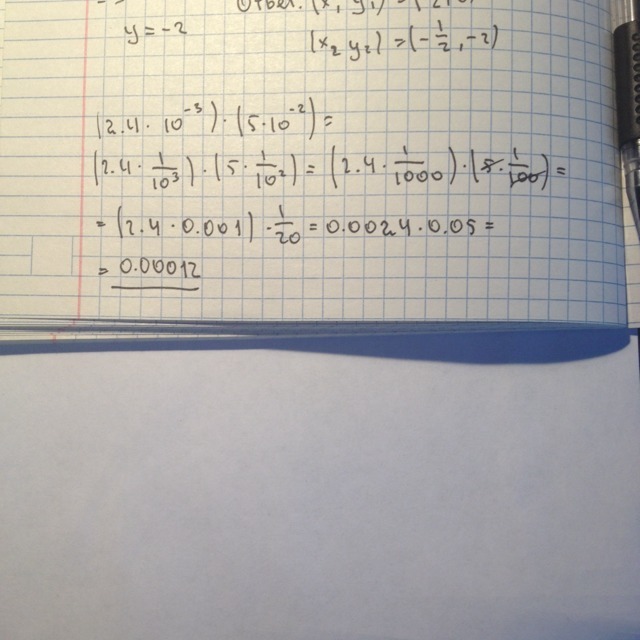 y = -2
(x₂ y₂) = (-1/2, -2)
(2.4 · 10⁻³) · (5 · 10⁻²) =
(2.4 · 1/10³) · (5 · 1/10²) = (2.4 · 1/1000) · (5 · 1/100) =
= (2.4 · 0.001) · 1/20 = 0.0024 · 0.05 =
= 0.00012